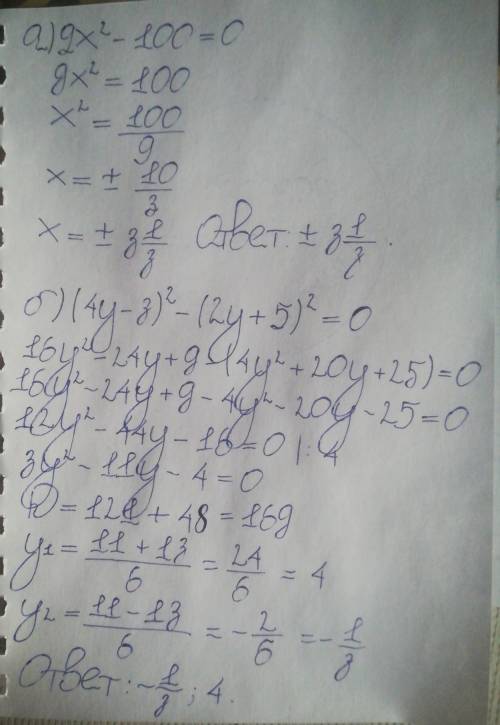 а) 9x² - 100 = 0
9x² = 100
x² = 100/9
x = ± 10/3
x = ± 3 1/3 Ответ: ± 3 1/3.
б) (4y - 3)² - (2y + 5)² = 0
16y² - 24y + 9 - (4y² + 20y + 25) = 0
16y² - 24y + 9 - 4y² - 20y - 25 = 0
12y² - 44y - 16 = 0 |: 4
3y² - 11y - 4 = 0
D = 121 + 48 = 169
y₁ = (11 + 13)/6 = 24/6 = 4
y₂ = (11 - 13)/6 = -2/6 = -1/3
Ответ: -1/3; 4.